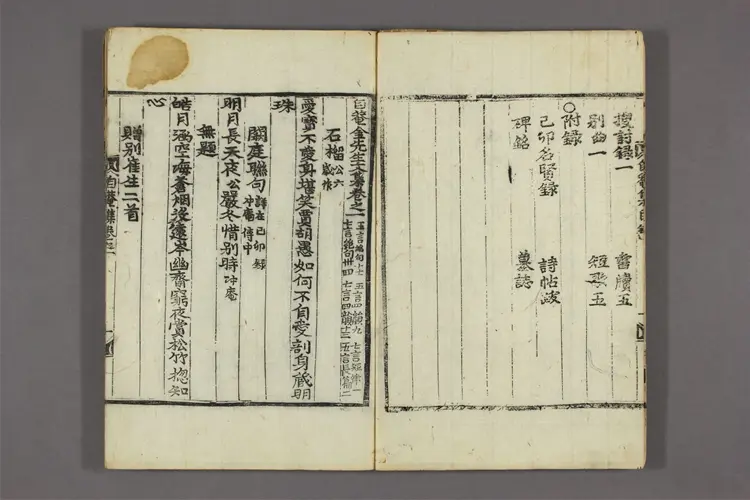 搜討錄一 書牘五
別曲一 短歌五
附錄
己卯名賢錄 詩帖跋
碑銘 墓誌
自菴金先生文集卷之一
石榴 公六歲作
愛寶不愛身堪笑賈胡愚如何不自愛剖身藏明
珠
闕庭聯句 詳在己卯錄
明月長天夜公嚴冬惜別時冲庵
無題
皓月張空海蒼烟沒遠岑幽齋窮夜賞松竹揔知
心
贈別崔生二首